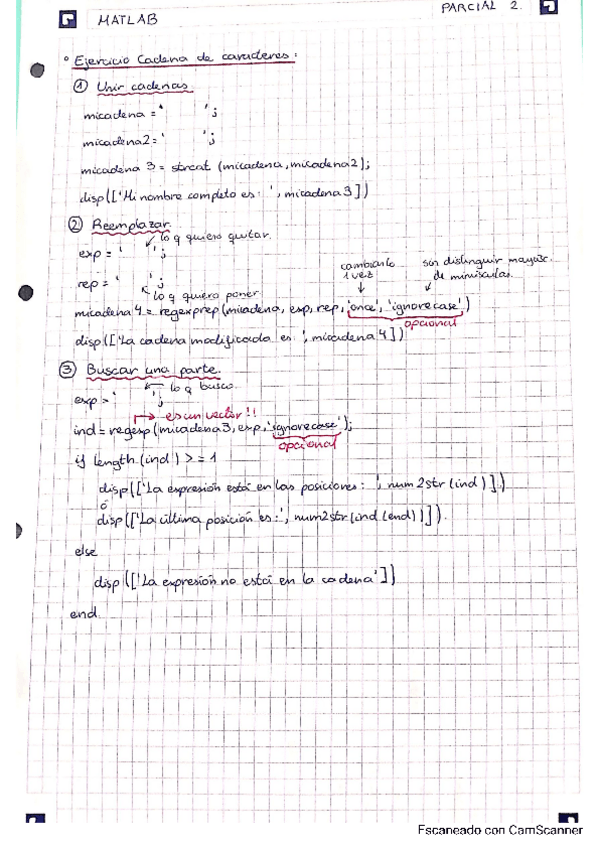 MATLAB
PARCIAL 2.
° Ejercicio Cadena de caracteres:
① Unir cadenas
micadena = ' ';
micadena2 = ' ';
micadena 3 = strcat (micadena, micadena2);
disp(['Mi nombre completo es: ', micadena3])
② Reemplazar.
lo q quiero quitar.
exp = ' ';
cambiarlo 1 vez
sin distinguir mayúsc. de minúsculas.
rep = ' ';
lo q quiero poner
micadena 4 = regexprep(micadena, exp, rep, 'once', 'ignorecase')
opcional
disp(['La cadena modificada es: ', micadena 4])
③ Buscar una parte.
lo q busco.
exp = ' ';
es un vector!!
ind = regexp(micadena3, exp, 'ignorecase');
opcional
if length(ind) >= 1
disp(['La expresión está en las posiciones: ', num2str(ind)])
ó
disp(['La última posición es:', num2str(ind(end))]).
else
disp(['La expresión no está en la cadena'])
end.
Escaneado con CamScanner